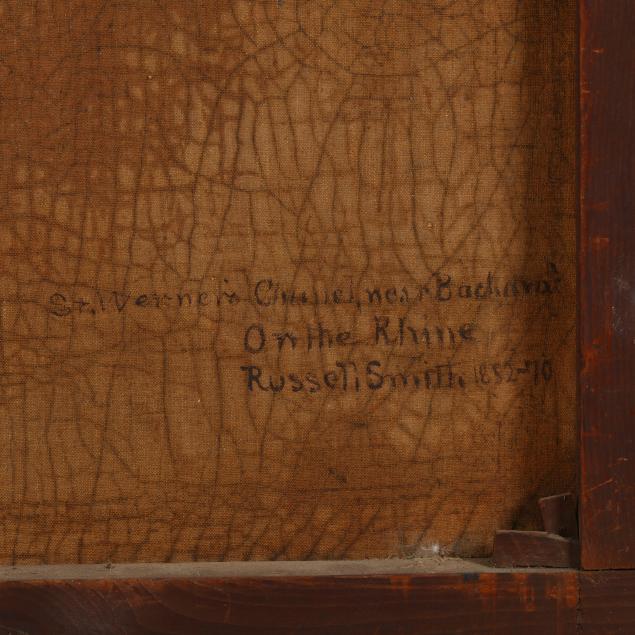 St. Werner's Chapel, near Bacharat
On the Rhine
Russell Smith, 1852-70